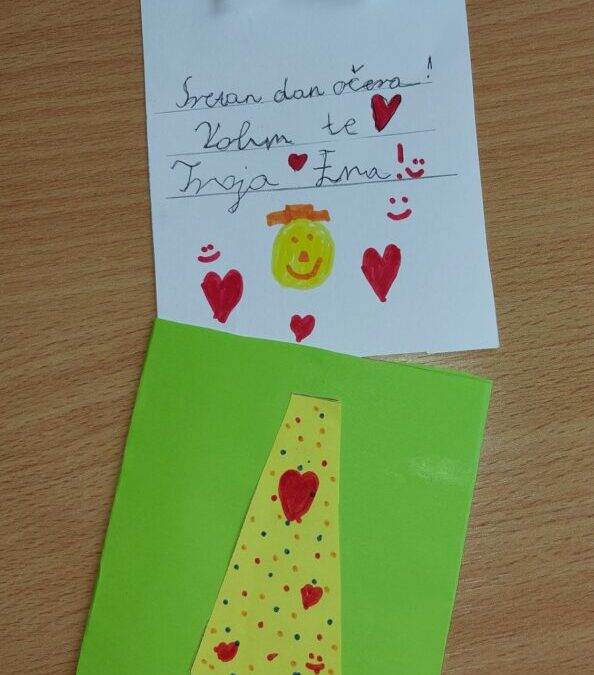 Sretan dan očeva!
Volim te
Tvoja Ena!